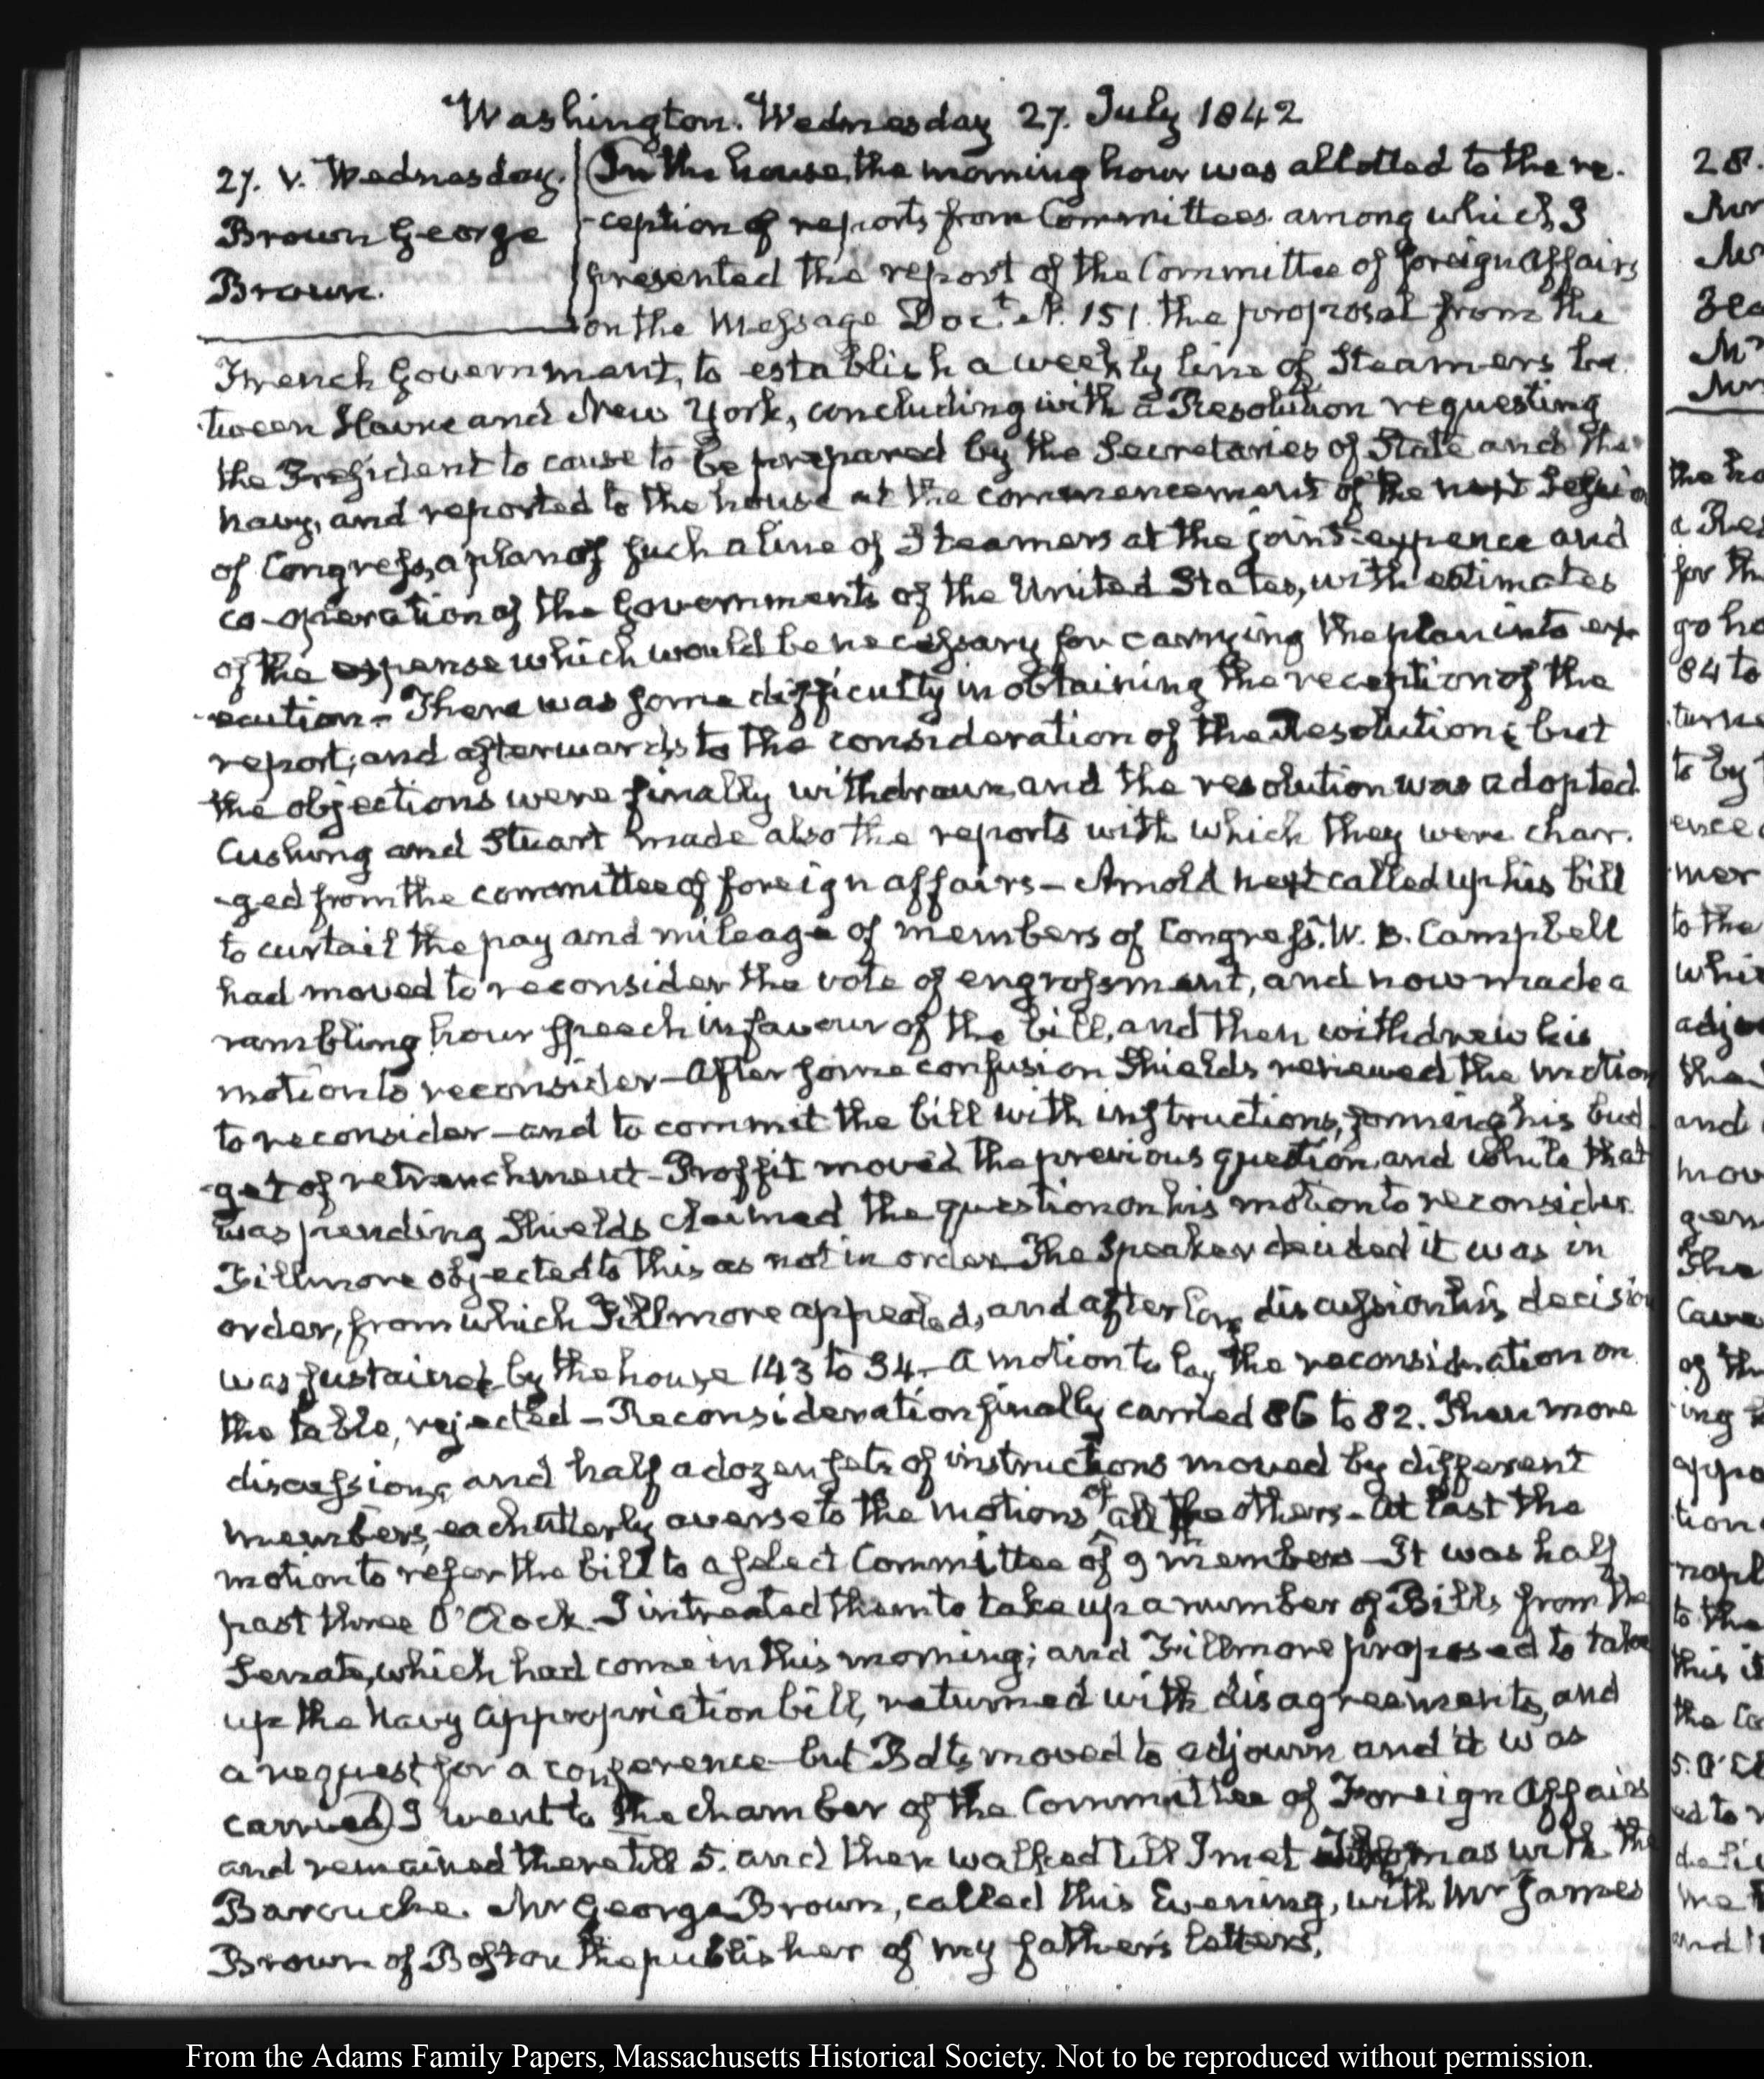 Washington. Wednesday 27. July 1842
27. V. Wednesday.
Brown George
Brown.
In the house, the morning hour was allotted to the re-
-ception of reports from Committees among which I
presented the report of the Committee of foreign Affairs
on the Message Doct. N. 151. the proposal from the
French Government, to establish a weekly line of Steamers be-
-tween Havre and New York, concluding with a Resolution requesting
the President to cause to be prepared by the Secretaries of State and the
navy, and reported to the house at the commencement of the next Session
of Congress, a plan of such a line of Steamers at the joint expence and
co-operation of the Governments of the United States, with estimates
of the expense which would be necessary for carrying the plan into ex-
-ecution- There was some difficulty in obtaining the reception of the
report; and afterwards to the consideration of the Resolution; but
the objections were finally withdrawn and the resolution was adopted.
Cushing and Stuart made also the reports with which they were char-
-ged from the committee of foreign affairs - Arnold next called up his bill
to curtail the pay and mileage of members of Congress. W. B. Campbell
had moved to reconsider the vote of engrossment, and now made a
rambling hour speech in favour of the bill, and then withdrew his
motion to reconsider - After some confusion Shields renewed the motion
to reconsider - and to commit the bill with instructions, forming his bud-
-get of retrenchment - Proffit moved the previous question, and while that
was pending Shields claimed the question on his motion to reconsider.
Fillmore objected to this as not in order - The Speaker decided it was in
order, from which Fillmore appealed, and after long discussion his decision
was sustained by the house 143 to 34 - A motion to lay the reconsideration on
the table, rejected - Reconsideration finally carried 86 to 82. Then more
discussions, and half a dozen sets of instructions moved by different
members, each utterly averse to the motions of all the others - At last the
motion to refer the bill to a select Committee of 9 members - It was half
past three O'Clock - I intreated them to take up a number of Bills from the
Senate, which had come in this morning; and Fillmore proposed to take
up the Navy appropriation bill, returned with disagreements, and
a request for a conference - but Botts moved to adjourn and it was
carried) I went to the chamber of the Committee of Foreign Affairs
and remained there till 5. and then walked till I met Thomas with the
Barouche. Mr George Brown, called this Evening, with Mr James
Brown of Boston the publisher of my father's letters.
From the Adams Family Papers, Massachusetts Historical Society. Not to be reproduced without permission.